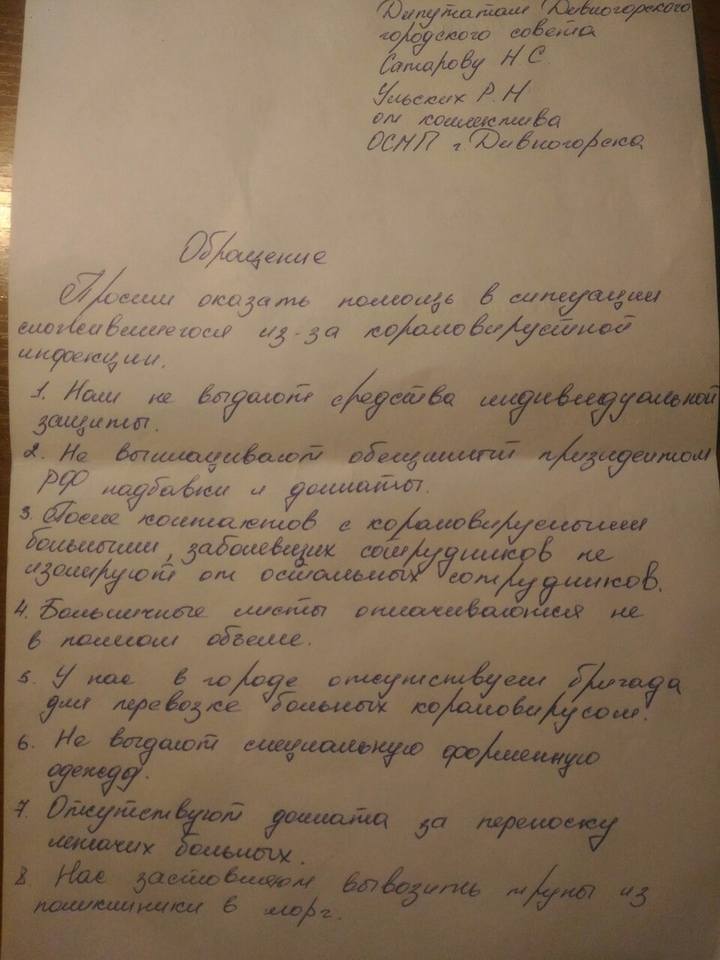 Депутатам Дивногорского
городского совета
Сатарову Н С.
Ульских Р. Н
от коллектива
ОСМП г. Дивногорска
Обращение
Просим оказать помощь в ситуации
сложившегося из-за корановирустной
инфекции.
1. Нам не выдают средства индивидуальной
защиты.
2. Не выплачивают обещанный президентом
РФ надбавки и доплаты.
3. После контактов с корановирусными
больными, заболевших сотрудников не
изолируют от остальных сотрудников.
4. Больничные листы оплачиваются не
в полном объеме.
5. У нас в городе отсутствует бригада
для перевозке больных корановирусом.
6. Не выдают специальную форменную
одежду.
7. Отсутствуют доплата за переноску
лежачих больных.
8. Нас заставляют вывозить трупы из
поликлиники в морг.